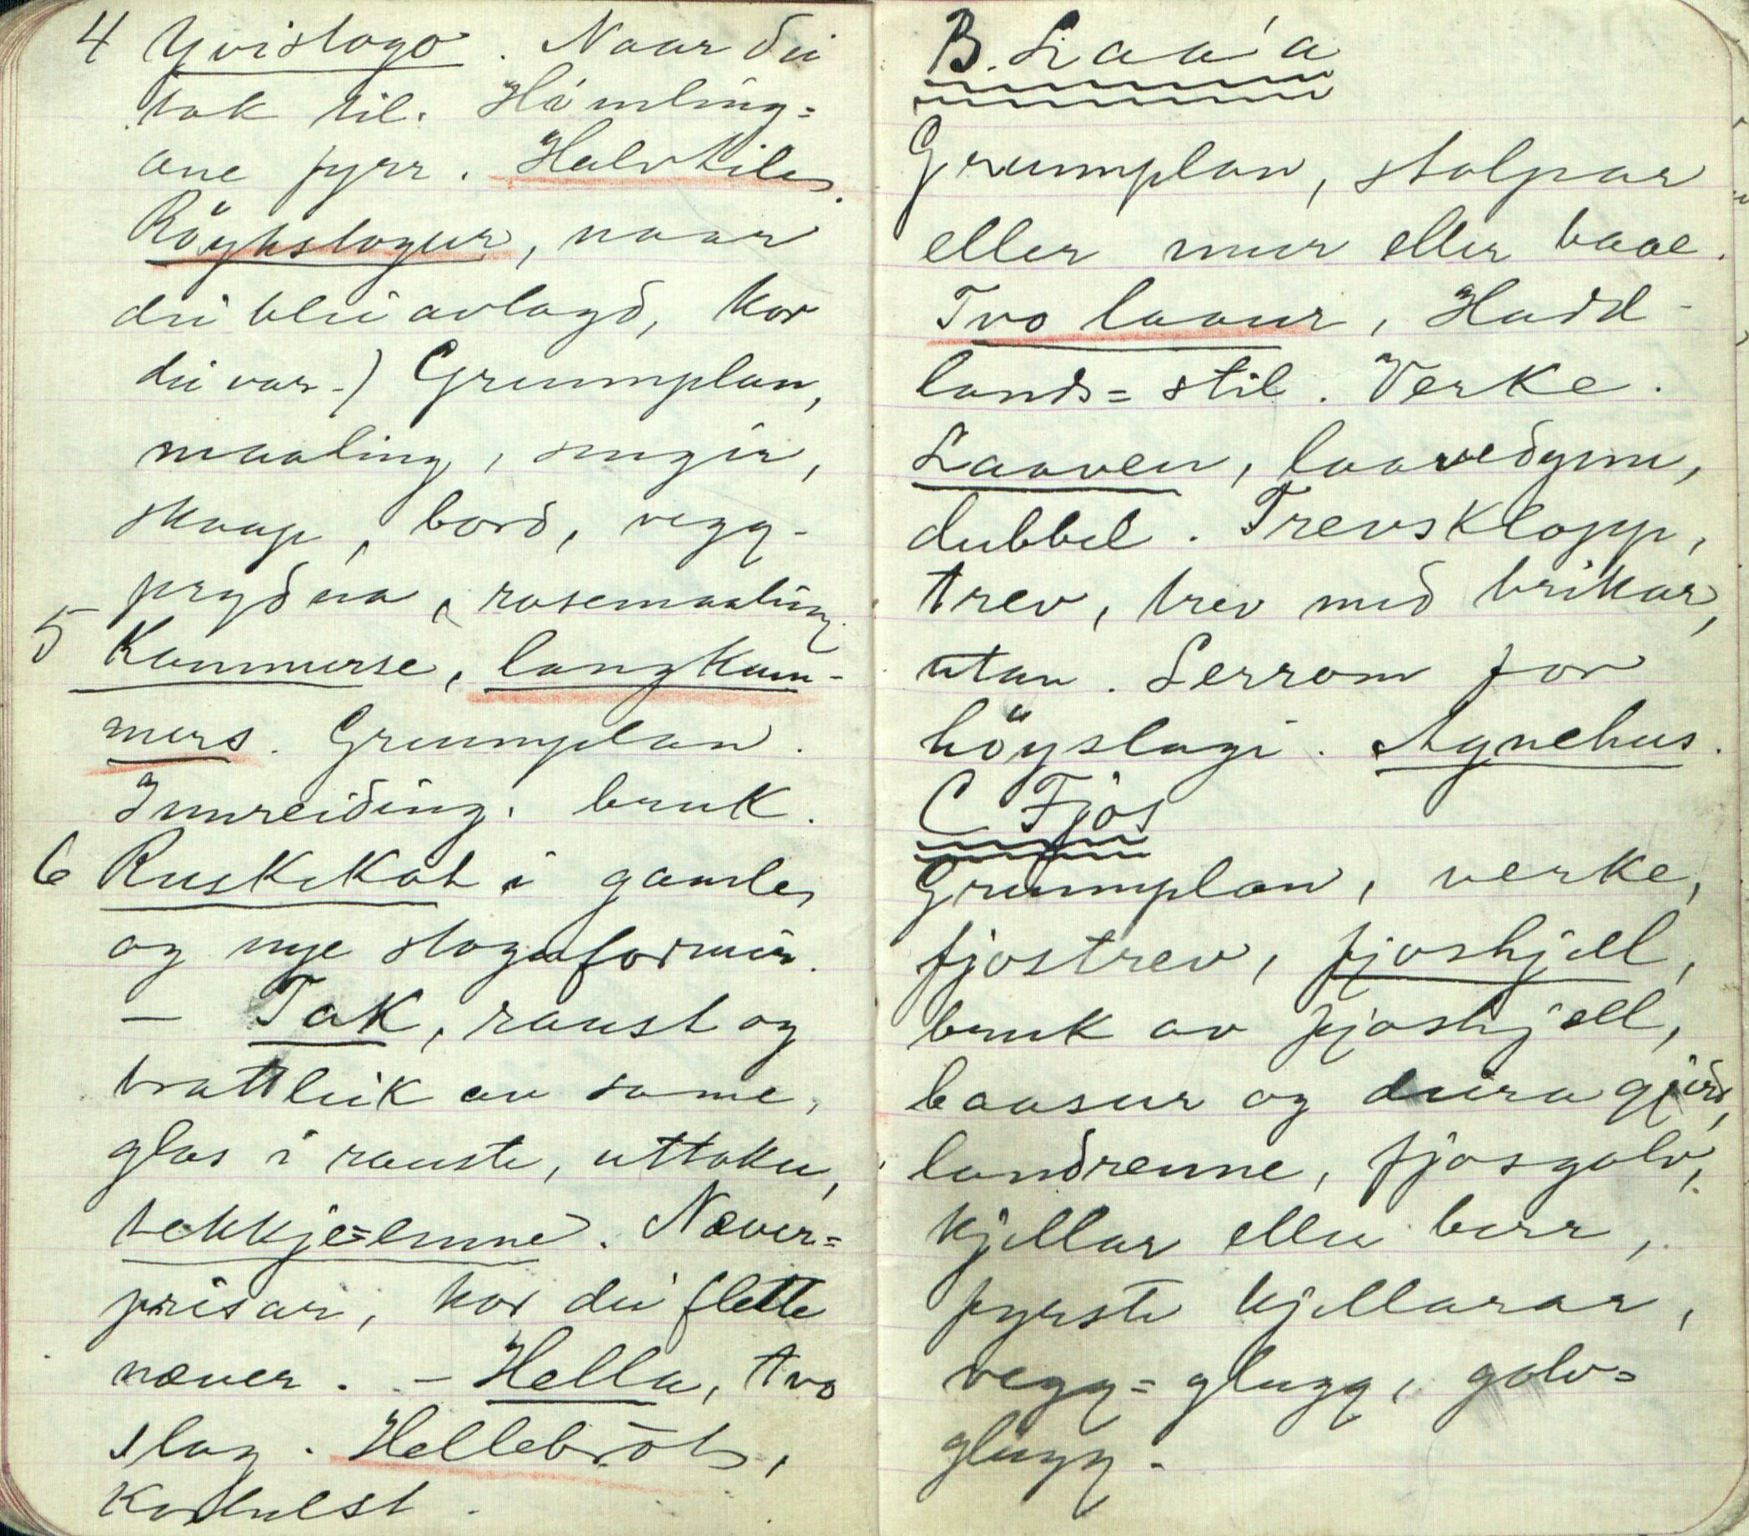 4 Yvistogo. Naar dei
tok til. Himling=
ane fyrr. Halvtile,
Röykstogur, naar
dei blei avlagd, kor
dei var-) Grunnplan,
maaling, sengir,
skaap, bord, vegg-
prydna, rosemaaling.
5 Kammerse, langkam-
mers. Grunnplan.
Innreiding. bruk.
6 Ruskekot i gamle,
og nye stogeformer.
- Tak, raust og
brattleik av same,
glas i rauste, uttoku,
tekkje=emne. Never=
prisar, kor dei flette
næver. - Hella, tvo
slag. Hellebrot,
Kortelst.
B. Laa'a
Grunnplan, stolpar
eller mur eller baae.
Tvo laaur, Hadd-
lands=stil. Verke.
Laaven, laavedyrr,
dubbel. Trevsklopp,
trev, trev med brikar,
utan. Serrom for
höyslagi. Agnehus.
C Fjos
Grunnplan, verke,
fjostrev, fjoshjell,
bruk av fjoshjell,
baasur og deira gjerd,
landrenne, fjosgolv,
kjellar eller berr,
fyrste kjellarar,
vegg=glugg, golv=
glugg.